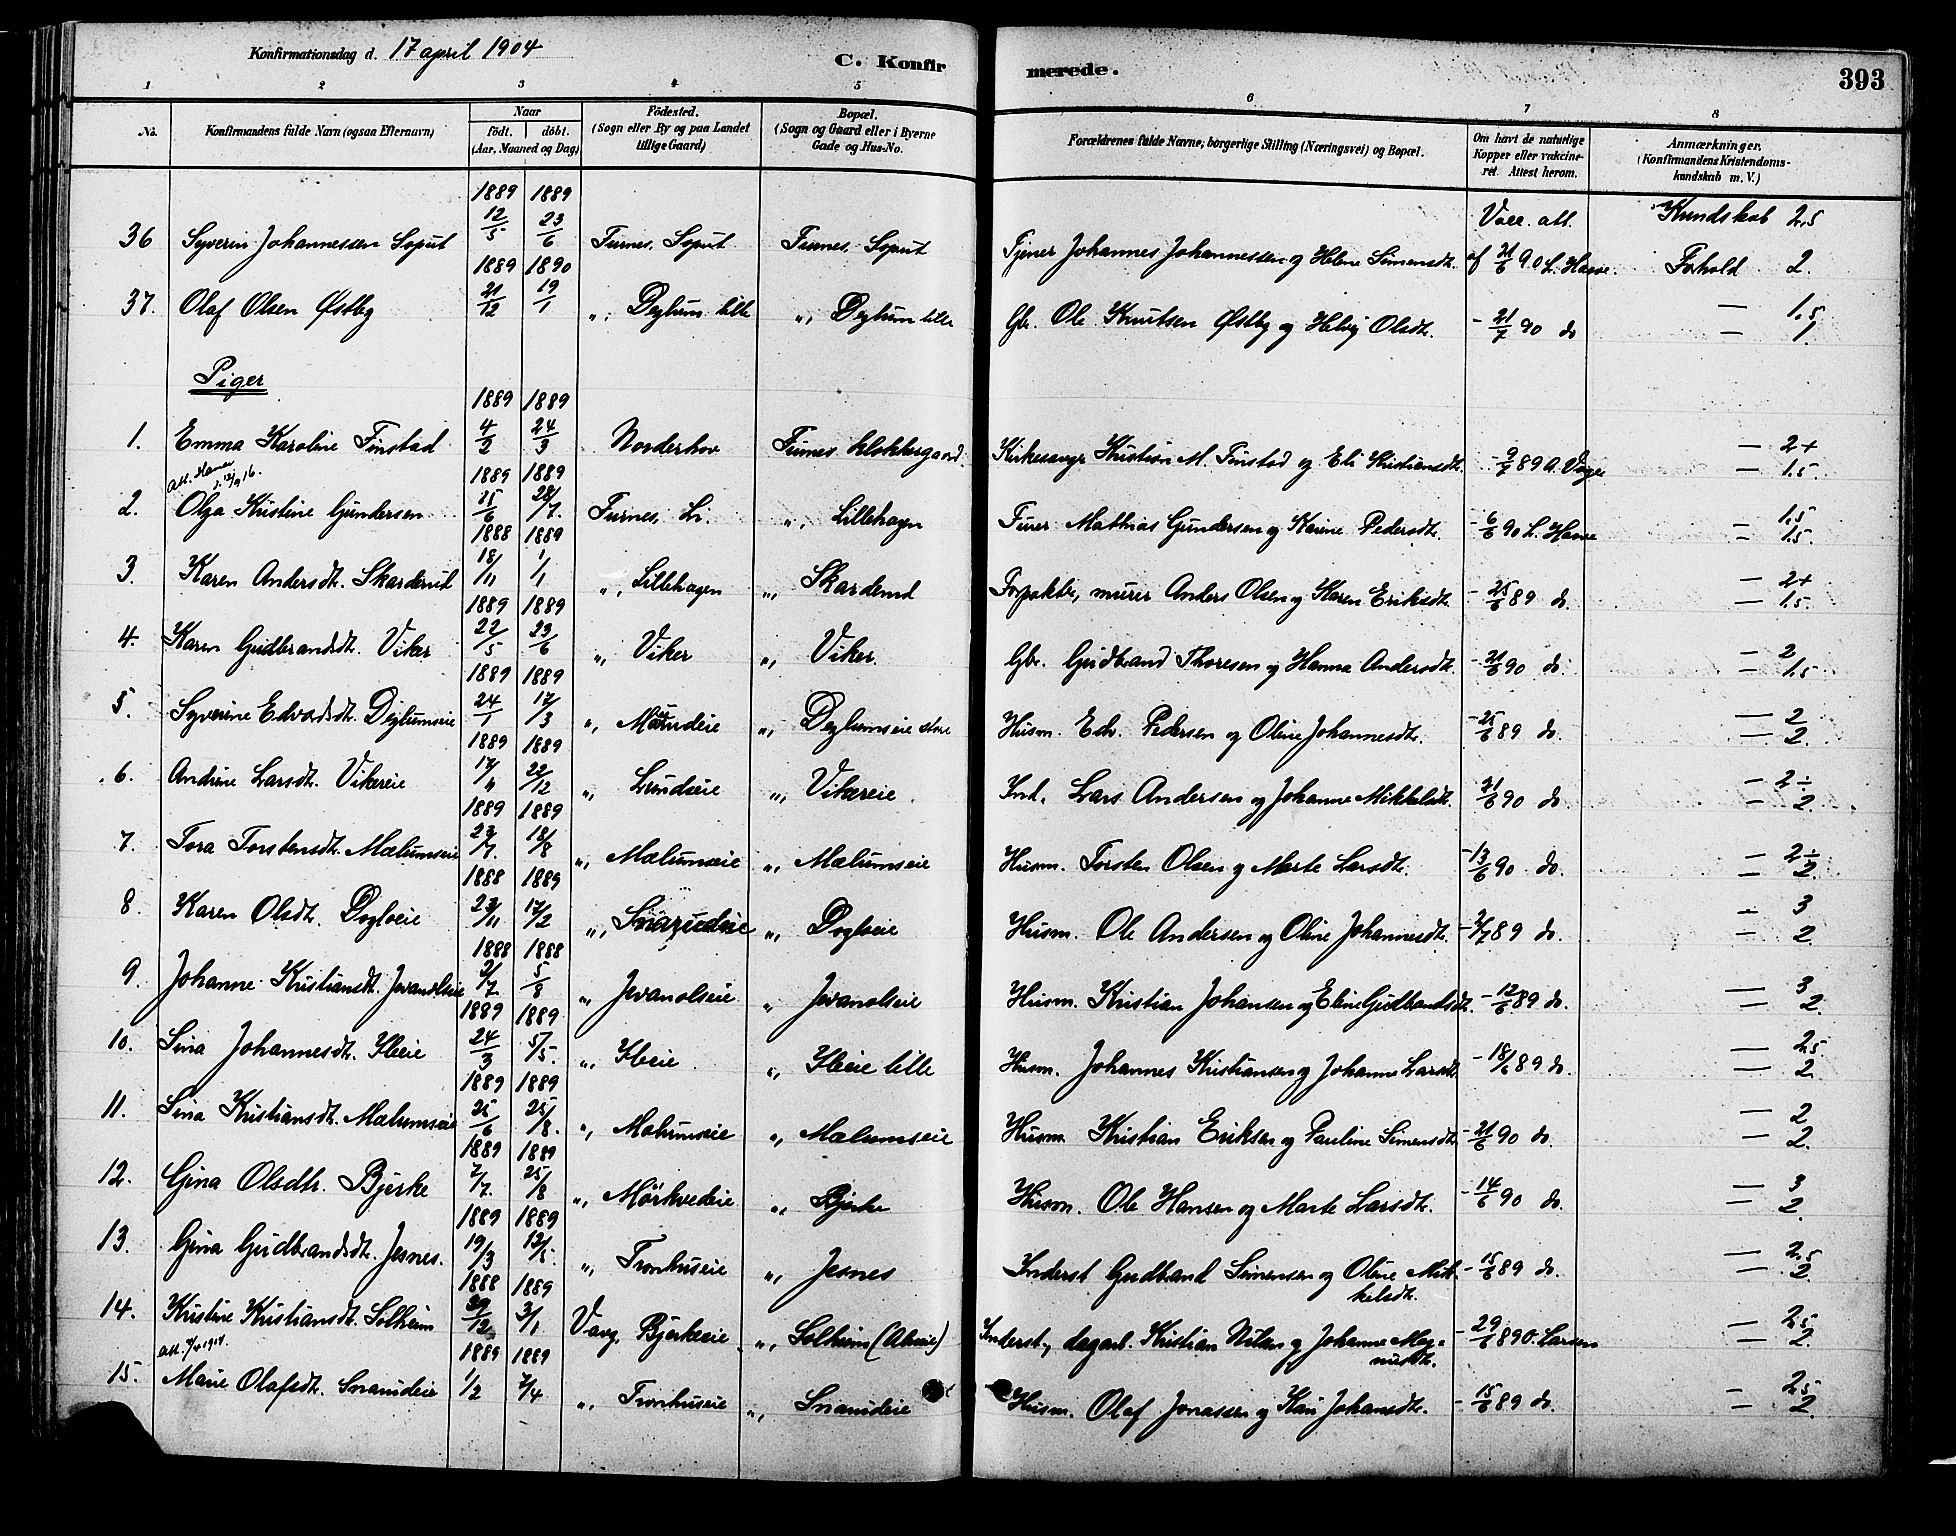 Konfirmationsdag d. 17 april 1904
C. Konfirmerede.
393
1 2 3 4 5 6 7 8
No. Konfirmandens fulde Navn (ogsaa Efternavn) Naar født. døbt. (Aar, Maaned og Dag) Fødested. (Sogn eller By og paa Landet tillige Gaard) Bopæl. (Sogn og Gaard eller i Byerne Gade og Hus-No. Forældrenes fulde Navne, borgerlige Stilling (Næringsvei) og Bopæl. Om havt de naturlige Kopper eller vakcineret. Attest herom. Anmærkninger. (Konfirmandens Kristendomskundskab m. V.)
36 Syverin Johannessen Soput 1889 12/5 1889 23/6 Furnes, Soput Furnes, Soput Tjener Johannes Johannessen og Helene Simensdt. Vacc. att. af 21/6 90 L. Hasse. Kundskab 2,5 Forhold 2.
37. Olaf Olsen Østby 1889 21/12 1890 19/1 „ Deglum lille „ Deglum lille Gbr. Ole Knutsen Østby og Helvig Olsdt. - 21/7 90 do — 1.5 — 1
Piger
1. Emma Karoline Finstad 1889 4/2 1889 24/3 Norderhov Furnes Klokkergaard. Kirkesanger Kristian M. Finstad og Eli Kristiansdt. - 9/7 89 A. Vaage — 2+ — 1.5
Att. Hamar
2. Olga Kristine Gundersen 1889 25/6 1889 28/7. Furnes, Li. „ Lillehagen Furer Mathias Gundersen og Karine Pedersdt. - 6/6 90 L. Hasse — 1.5 — 1.5.
3. Karen Andersdt. Skarderud 1888 18/11 1889 1/1 „ Lillehagen „ Skarderud Forpakter, murer Anders Olsen og Karen Eriksdt. - 25/6 89 do. — 2+ — 1.5.
4. Karen Gudbrandsdt. Viker 1889 22/5 1889 23/6 „ Viker „ Viker. Gbr. Gudbrand Thoresen og Hanna Andersdt. - 21/6 90 do. — 2 — 1.5
5. Syverine Edvardsdt. Deglumseie 1889 24/1 1889 17/3 „ „ Deglumseie store Husm. Edv. Pedersen og Oline Johannesdt. - 25/6 89 do. — 2 — 2.
6. Andrine Larsdt. Vikereie 1889 17/11 1889 22/12 „ Lundseie „ Vikereie Ind. Lars Andersen og Johanne Mikkelsdt. 21/6 90 do — 2÷ — 2.
7. Tora Torstensdt. Mælumseie 1889 23/7. 1889 18/8 „ Mælumseie „ Mælumseie Husm. Torsten Olsen og Marte Larsdt. - 13/6 90 do. — 2÷ — 2.
8. Karen Olsdt. Dogloeie 1888 23/11 1889 17/2 „ Snarudeie „ Dogloeie Husm. Ole Andersen og Oline Johannesdt. - 2/7 89 do. — 3 — 2
9. Johanne Kristiansdt. Jevanolseie 1888 2/7. 1888 5/8 „ Jevanolseie „ Jevanolseie Husm. Kristian Johansen og Eline Gudbrandsdt. - 12/6 89 do. — 3 — 2.
10. Lina Johannesdt. Ileeie 1889 24/3 1889 5/5. „ Ileeie „ Ileeie lille Husm. Johannes Kristiansen og Johanne Larsdt. - 18/6 89 do. — 2.5 — 2.
11. Lina Kristiansdt. Mælumseie 1889 25/6 1889 25/8. „ Mælumseie „ Mælumseie Husm. Kristian Eriksen og Pauline Simensdt. - 21/6 90 do. — 2 — 2.
12. Gina Olsdtr. Bjerke 1889 7/7. 1889 25/8 „ Mørkvedeie „ Bjerke Husm. Ole Hansen og Marte Larsdt. - 14/6 90 do. — 3 — 2.
13. Gina Gudbrandsdt. Jesnes. 1889 19/3 1889 12/5. „ Tronhuseie „ Jesnes Inderst Gudbrand Simensen og Oline Mikkelsdt. - 15/6 89 do. — 2.5 — 2.
14. Kristine Kristiansdt. Solheim 1888 29/12 1889 3/1 Vang, Bjerkeeie „ Solheim (Alneie) Inderst, dagarb. Kristian Nilsen og Johanne Magnusdt. - 29/6 89 O. Larsen — 2.5 — 2.
15. Marie Olafsdt. Snarudeie 1889 1/2 1889 7/4 „ Tronhuseie „ Snarudeie Husm. Olaf Jonassen og Kari Johansdt. - 15/6 89 do. — 2.5 — 2.